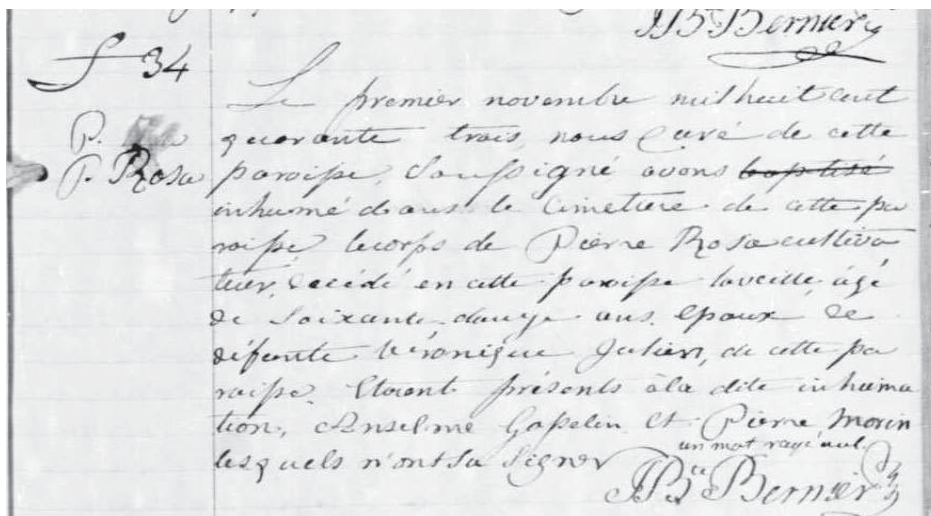 JBte Bernier
S 34
P.
P. Rosa
Le premier novembre mil huit cent
quarante trois, nous Curé de cette
paroisse, Soussigné avons baptisé
inhumé dans le Cimetière de cette pa
roisse, le corps de Pierre Rosa cultiva
teur, décédé en cette paroisse la veille, âgé
de Soixante-douze ans, Epoux de
défunte Véronique Julien, de cette pa
roisse. Etoient présents à la dite inhuma
tion, Anselme Gosselin Et Pierre Morin
un mot rayé nul.
lesquels n'ont Su Signer
JBte Bernier